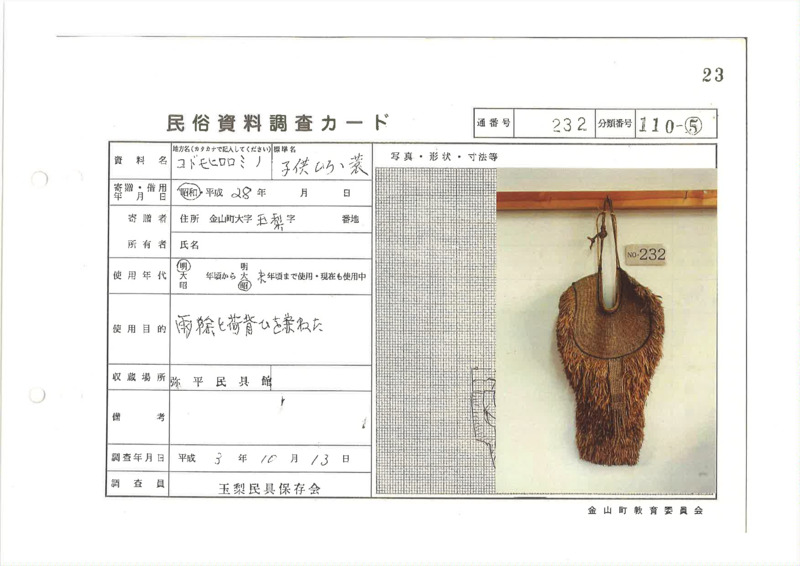 23
民俗資料調査カード
通番号 232 分類番号 110-⑤
資料名 地方名(カタカナで記入してください) 標準名
コドモヒロロミノ 子供ひろゝ蓑
写真・形状・寸法等
寄贈・借用年月日 昭和・平成 28年 月 日
寄贈者 住所 金山町大字玉梨字 番地
所有者 氏名
使用年代 明大昭 年頃から 明大昭 末年頃まで使用・現在も使用中
NO-232
使用目的 雨除と荷背ひを兼ねた
収蔵場所 弥平民具館
備考
調査年月日 平成 3年 10月 13日
調査員 玉梨民具保存会
金山町教育委員会